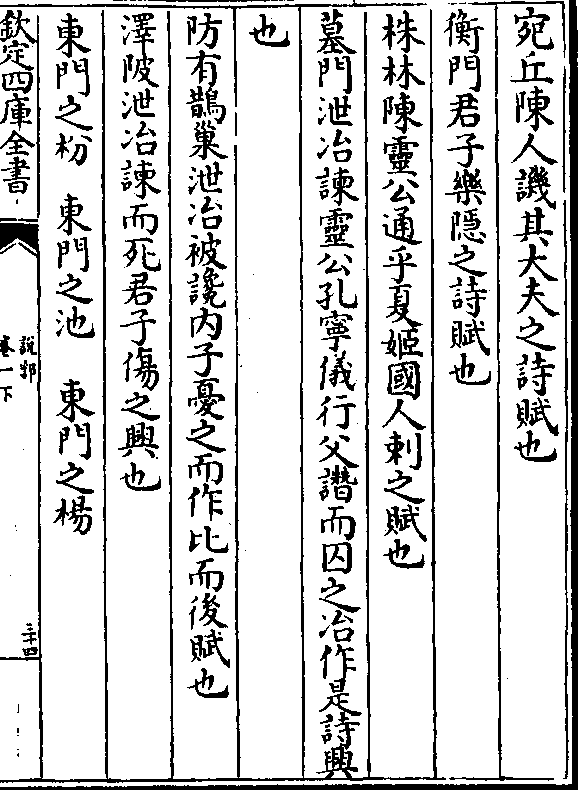 宛丘陳人譏其大夫之詩賦也
衡門君子樂隱之詩賦也
株林陳靈公通乎夏姬國人刺之賦也
墓門泄冶諫靈公孔寧儀行父譖而囚之冶作是詩興
也
防有鵲巢泄冶被讒内子憂之而作比而後賦也
澤陂泄冶諫而死君子傷之興也
東門之枌 東門之池 東門之楊
欽定四庫全書
說郛
卷一下
三十四